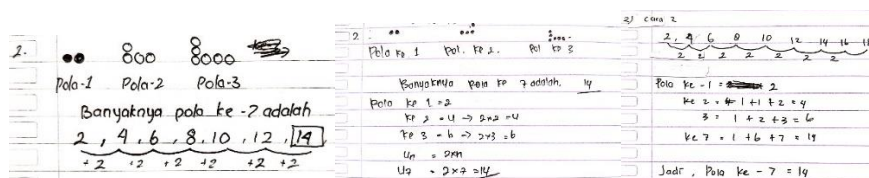 2.
Pola-1 Pola-2 Pola-3
Banyaknya pola ke -7 adalah
2, 4, 6, 8, 10, 12, 14
+2 +2 +2 +2 +2 +2
2
Pola ke 1 Pol. ke 2. Pol ke 3
Banyaknya pola ke 7 adalah. 14
Pola ke 1 = 2
ke 2 = 4 → 2x2 = 4
ke 3 = 6 → 2x3 = 6
Un = 2xn
U7 = 2x7 = 14
2) cara 2
2, 4 6 8 10 12 14 16
2 2 2 2 2 2
Pola ke - 1 = 2
ke 2 = 1 + 1 + 2 = 4
3 = 1 + 2 + 3 = 6
ke 7 = 1 + 6 + 7 = 14
Jadi, Pola ke - 7 = 14